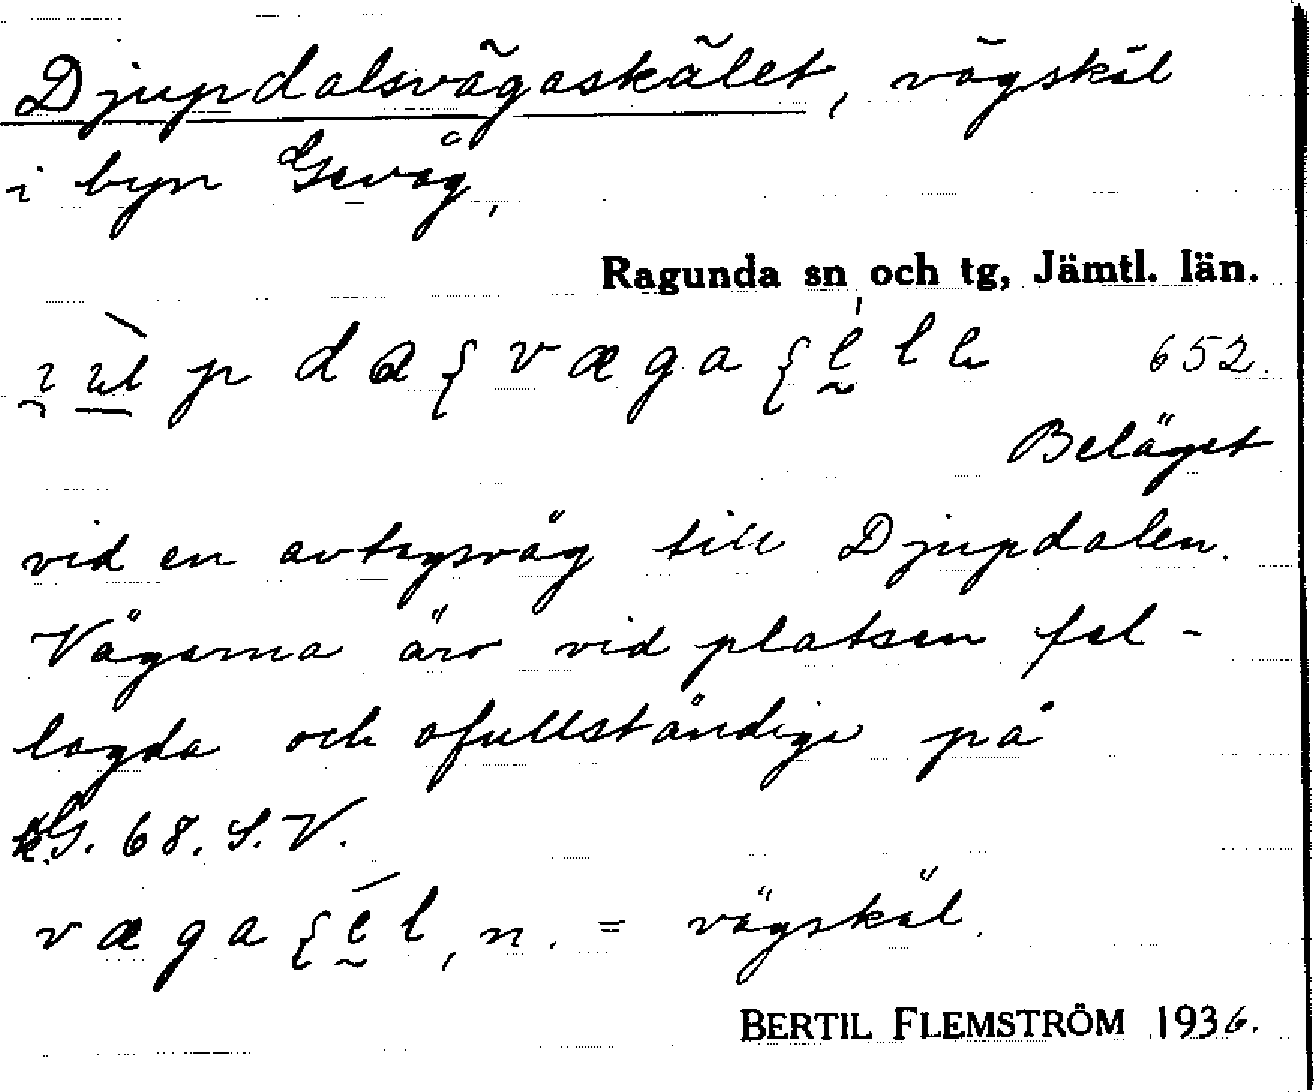 Djupdalsvägaskälet, vägskäl
i byn Gevåg,
Ragunda sn och tg, Jämtl. län.
652.
Beläget
vid en avtagsväg till Djupdalen.
Vägarna äro vid platsen fel-
lagda och ofullständiga på
k.G. 68. S.V.
n. = vägskäl.
BERTIL FLEMSTRÖM 1936.